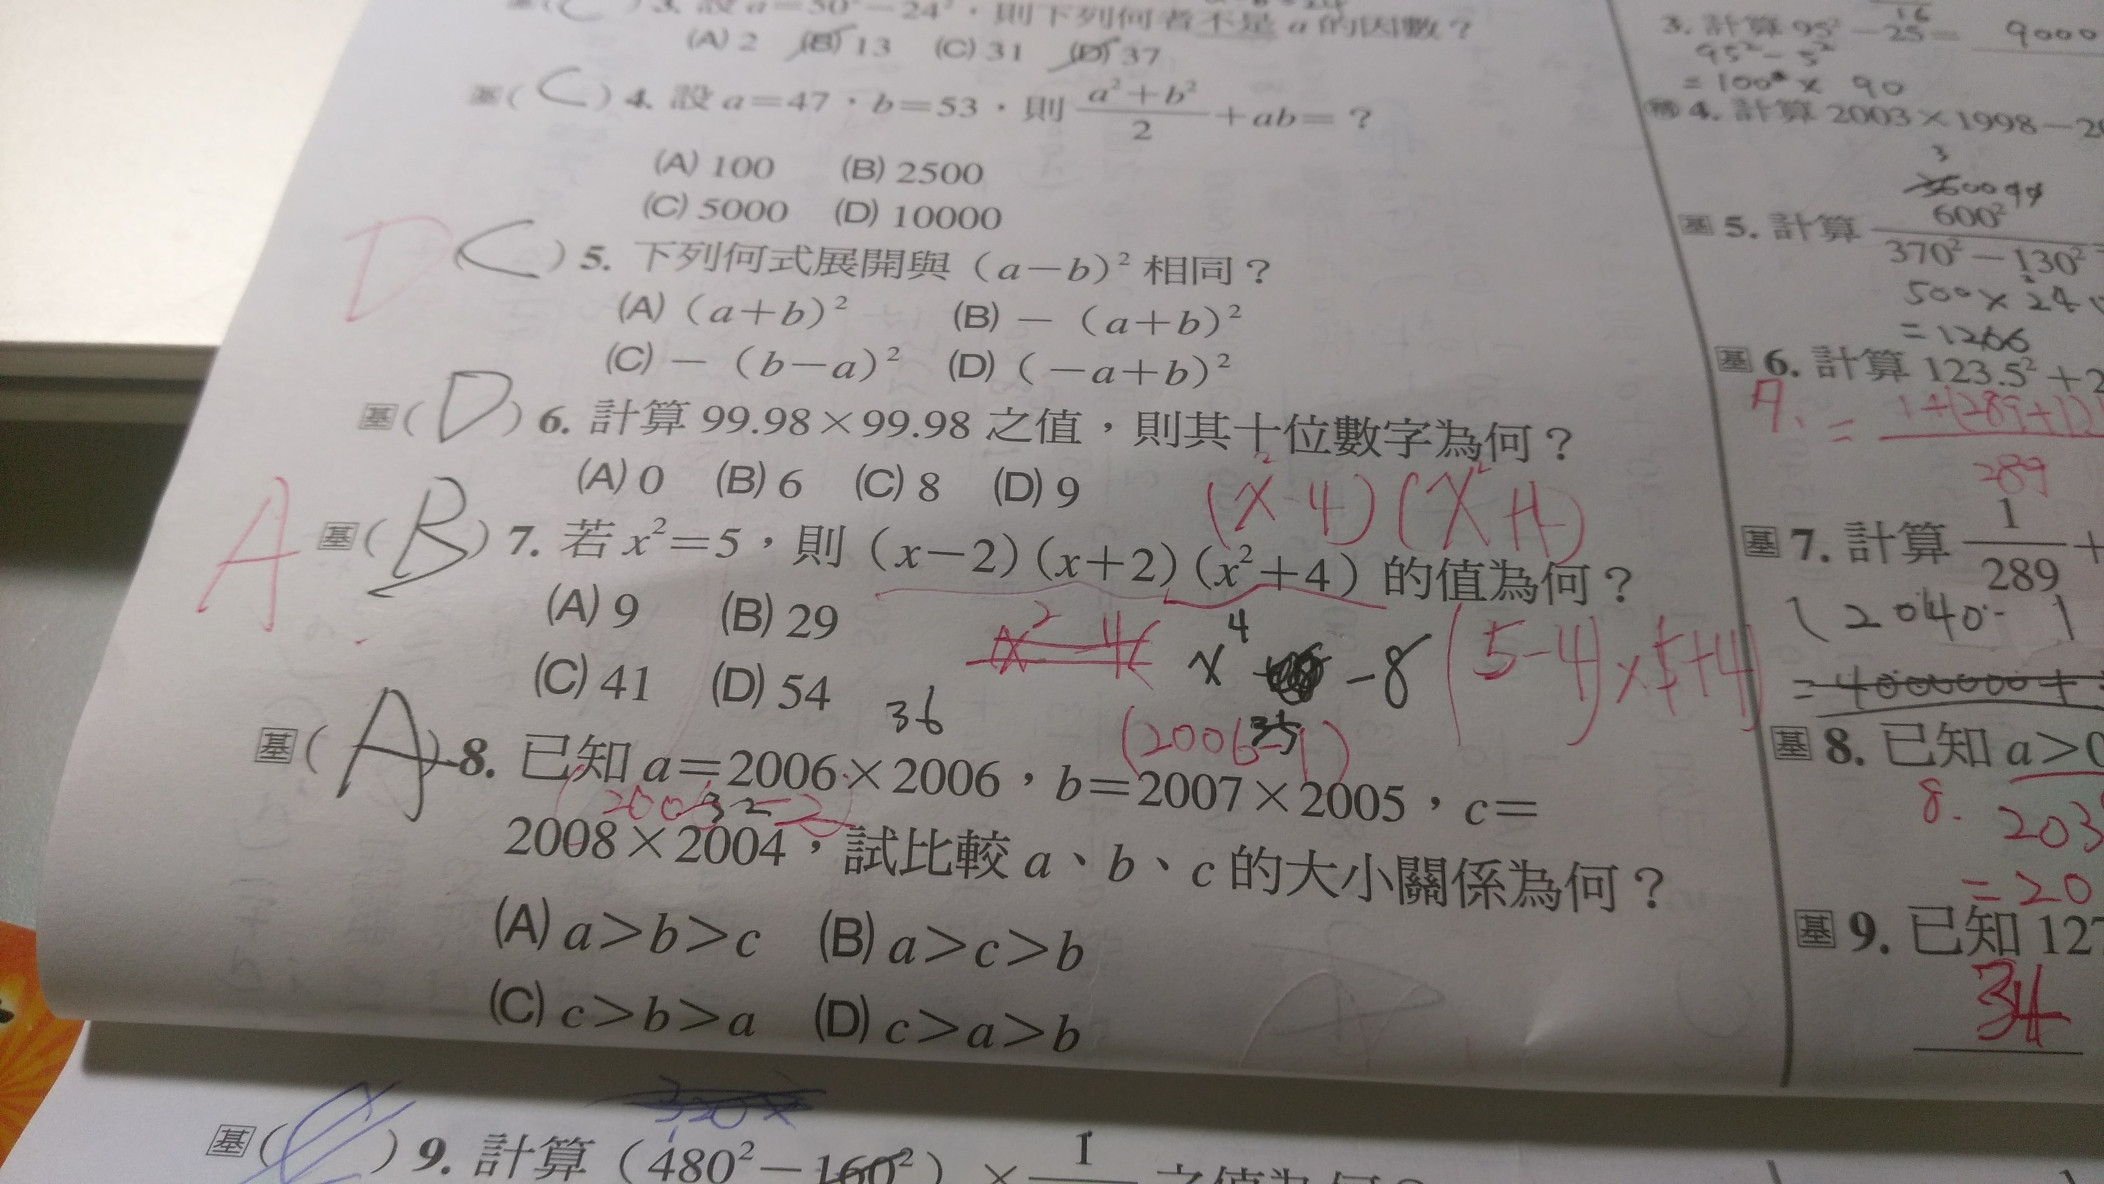 則下列何者不是 a 的因數？
(A) 2 (B) 13 (C) 31 (D) 37
基( C ) 4. 設 a=47，b=53，則 (a²+b²)/2 +ab=？
(A) 100 (B) 2500
(C) 5000 (D) 10000
D ( C ) 5. 下列何式展開與（a－b）² 相同？
(A)（a＋b）² (B) －（a＋b）²
(C) －（b－a）² (D)（－a＋b）²
基( D ) 6. 計算 99.98×99.98 之值，則其十位數字為何？
(A) 0 (B) 6 (C) 8 (D) 9
(x²-4)(x²+4)
A 基( B ) 7. 若 x²=5，則（x－2）（x＋2）（x²＋4）的值為何？
(A) 9 (B) 29
x²-4( x⁴ -8 (5-4)×5+4)
(C) 41 (D) 54
36 (2006-1) 35
基( A ) 8. 已知 a=2006×2006，b=2007×2005，c=
32
2008×2004，試比較 a、b、c 的大小關係為何？
(A) a>b>c (B) a>c>b
(C) c>b>a (D) c>a>b
基( ) 9. 計算（480²－160²）× 1
16
3. 計算 95²－25= 9000
95²-5²
=100×90
4. 計算 2003×1998－2
基 5. 計算 600²/370²－130²
500×240
基 6. 計算 123.5²＋2
A. = 1+(289+1)
289
基 7. 計算 1/289 ＋
(2040- 1
= 4000000+
基 8. 已知 a>0
8. 203
=20
基 9. 已知 127
34